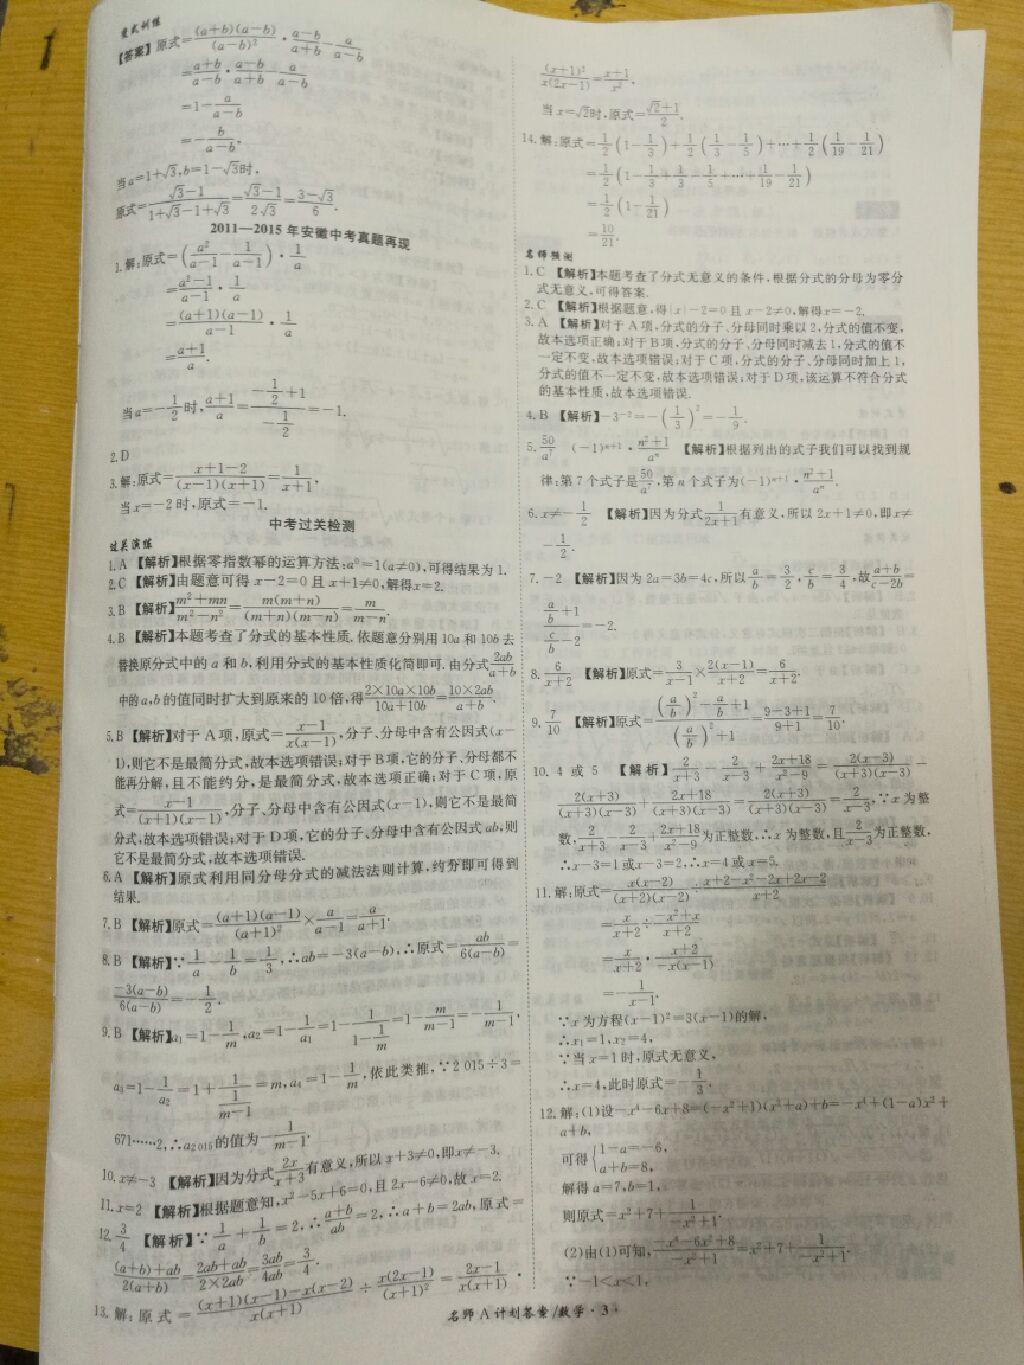 变式训练
【答案】原式=(a+b)(a-b)/(a-b)²·(a-b)/(a+b)-a/(a-b)
=(a+b)/(a-b)·(a-b)/(a+b)-a/(a-b)
=1-a/(a-b)
=-b/(a-b).
当a=1+√3,b=1-√3时,
原式=(√3-1)/(1+√3-1+√3)=(√3-1)/(2√3)=(3-√3)/6.
2011—2015年安徽中考真题再现
1.解:原式=(a²/(a-1)-1/(a-1))·1/a
=(a²-1)/(a-1)·1/a
=(a+1)(a-1)/(a-1)·1/a
=(a+1)/a.
当a=-1/2时,(a+1)/a=(-1/2+1)/(-1/2)=-1.
2.D
3.解:原式=(x+1-2)/((x-1)(x+1))=1/(x+1),
当x=-2时,原式=-1.
中考过关检测
过关演练
1.A 【解析】根据零指数幂的运算方法:a⁰=1(a≠0),可得结果为1.
2.C 【解析】由题意可得x-2=0且x+1≠0,解得x=2.
3.B 【解析】(m²+mn)/(m²-n²)=m(m+n)/((m+n)(m-n))=m/(m-n).
4.B 【解析】本题考查了分式的基本性质.依题意分别用10a和10b去
替换原分式中的a和b,利用分式的基本性质化简即可.由分式2ab/(a+b)
中的a,b的值同时扩大到原来的10倍,得(2×10a×10b)/(10a+10b)=(10×2ab)/(a+b).
5.B 【解析】对于A项,原式=(x-1)/(x(x-1)),分子、分母中含有公因式(x-
1),则它不是最简分式,故本选项错误;对于B项,它的分子、分母都不
能再分解,且不能约分,是最简分式,故本选项正确;对于C项,原
式=(x-1)/((x+1)(x-1)),分子、分母中含有公因式(x-1),则它不是最简
分式,故本选项错误;对于D项,它的分子、分母中含有公因式ab,则
它不是最简分式,故本选项错误.
6.A 【解析】原式利用同分母分式的减法法则计算,约分即可得到
结果.
7.B 【解析】原式=(a+1)(a-1)/(a+1)²×a/(a-1)=a/(a+1).
8.B 【解析】∵1/a-1/b=1/3,∴ab=-3(a-b),∴原式=ab/(6(a-b))=
-3(a-b)/(6(a-b))=-1/2.
9.B 【解析】a₁=1-1/m,a₂=1-1/a₁=1-1/(1-1/m)=1-m/(m-1)=-1/(m-1),
a₃=1-1/a₂=1+1/(1/(m-1))=m,a₄=1-1/m,依此类推,∵2 015÷3=
671……2,∴a₂₀₁₅的值为-1/(m-1).
10.x≠-3 【解析】因为分式2x/(x+3)有意义,所以x+3≠0,即x≠-3.
11.x=2 【解析】根据题意知,x²-5x+6=0,且2x-6≠0,故x=2.
12.3/4 【解析】∵1/a+1/b=2,∴(a+b)/ab=2,∴a+b=2ab,原式=
((a+b)+ab)/(2(a+b))=(2ab+ab)/(2×2ab)=3ab/4ab=3/4.
13.解:原式=((x+1)(x-1)-x(x-2))/(x(x+1))÷x(2x-1)/(x+1)²=(2x-1)/(x(x+1))·
(x+1)²/(x(2x-1))=(x+1)/x².
当x=√2时,原式=(√2+1)/2.
14.解:原式=1/2(1-1/3)+1/2(1/3-1/5)+…+1/2(1/19-1/21)
=1/2(1-1/3+1/3-1/5+…+1/19-1/21)
=1/2(1-1/21)
=10/21.
名师预测
1.C 【解析】本题考查了分式无意义的条件,根据分式的分母为零分
式无意义,可得答案.
2.C 【解析】根据题意,得|x|-2=0且x-2≠0,解得x=-2.
3.A 【解析】对于A项,分式的分子、分母同时乘以2,分式的值不变,
故本选项正确;对于B项,分式的分子、分母同时减去1,分式的值不
一定不变,故本选项错误;对于C项,分式的分子、分母同时加上1,
分式的值不一定不变,故本选项错误;对于D项,该运算不符合分式
的基本性质,故本选项错误.
4.B 【解析】-3⁻²=-(1/3)²=-1/9.
5.50/a⁷ (-1)ⁿ⁺¹·(n²+1)/aⁿ 【解析】根据列出的式子我们可以找到规
律:第7个式子是50/a⁷,第n个式子为(-1)ⁿ⁺¹·(n²+1)/aⁿ.
6.x≠-1/2 【解析】因为分式1/(2x+1)有意义,所以2x+1≠0,即x≠
-1/2.
7.-2 【解析】因为2a=3b=4c,所以a/b=3/2,c/b=3/4,故(a+b)/(c-2b)=
(a/b+1)/(c/b-2)=-2.
8.6/(x+2) 【解析】原式=3/(x-1)×2(x-1)/(x+2)=6/(x+2).
9.7/10 【解析】原式=((a/b)²-a/b+1)/((a/b)²+1)=(9-3+1)/(9+1)=7/10.
10.4或5 【解析】2/(x+3)-2/(x-3)+(2x+18)/(x²-9)=2(x-3)/((x+3)(x-3))-
2(x+3)/((x+3)(x-3))+(2x+18)/((x+3)(x-3))=2(x+3)/((x+3)(x-3))=2/(x-3),∵x为整
数,2/(x+3)-2/(x-3)+(2x+18)/(x²-9)为正整数,∴x为整数,且2/(x-3)为正整数,
∴x-3=1或x-3=2,∴x=4或x=5.
11.解:原式=x(x-2)/((x+2)(x-2))÷(x+2-x²-2x+2x-2)/(x+2)
=x/(x+2)÷(-x²+x)/(x+2)
=x/(x+2)·(x+2)/(-x(x-1))
=-1/(x-1),
∵x为方程(x-1)²=3(x-1)的解,
∴x₁=1,x₂=4,
∵当x=1时,原式无意义,
∴x=4,此时原式=-1/3.
12.解:(1)设-x⁴-6x²+8=(-x²+1)(x²+a)+b=-x⁴+(1-a)x²+
a+b,
可得{1-a=-6, a+b=8,
解得a=7,b=1,
则原式=x²+7+1/(-x²+1).
(2)由(1)可知,(-x⁴-6x²+8)/(-x²+1)=x²+7+1/(-x²+1).
∵-1<x<1,
名师A计划答案/数学·3